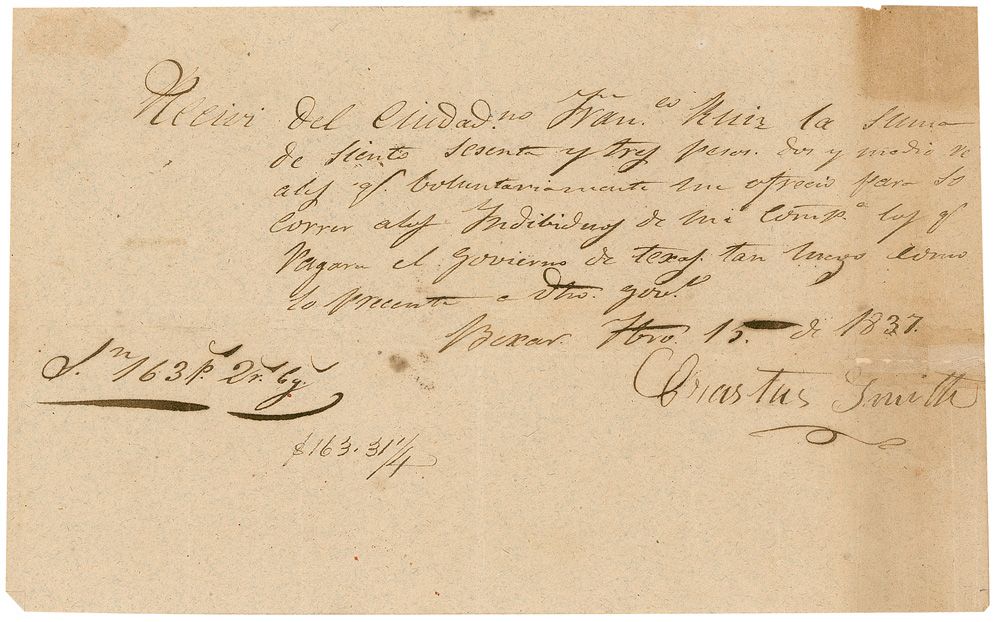 Recivi del Ciudad.no Fran.co Ruiz la suma
de siento sesenta y tres pesos dos y medio re
ales q.e boluntariamente me ofrecio para so
correr a los Indibiduos de mi Comp.a los q.e
Pagara el Govierno de texas tan luego como
lo precente a dho. gov.o
Bexar 15 de 1837.
Erastus Smith
S.n 163 p.s 2 r.s
$163.31 1/4